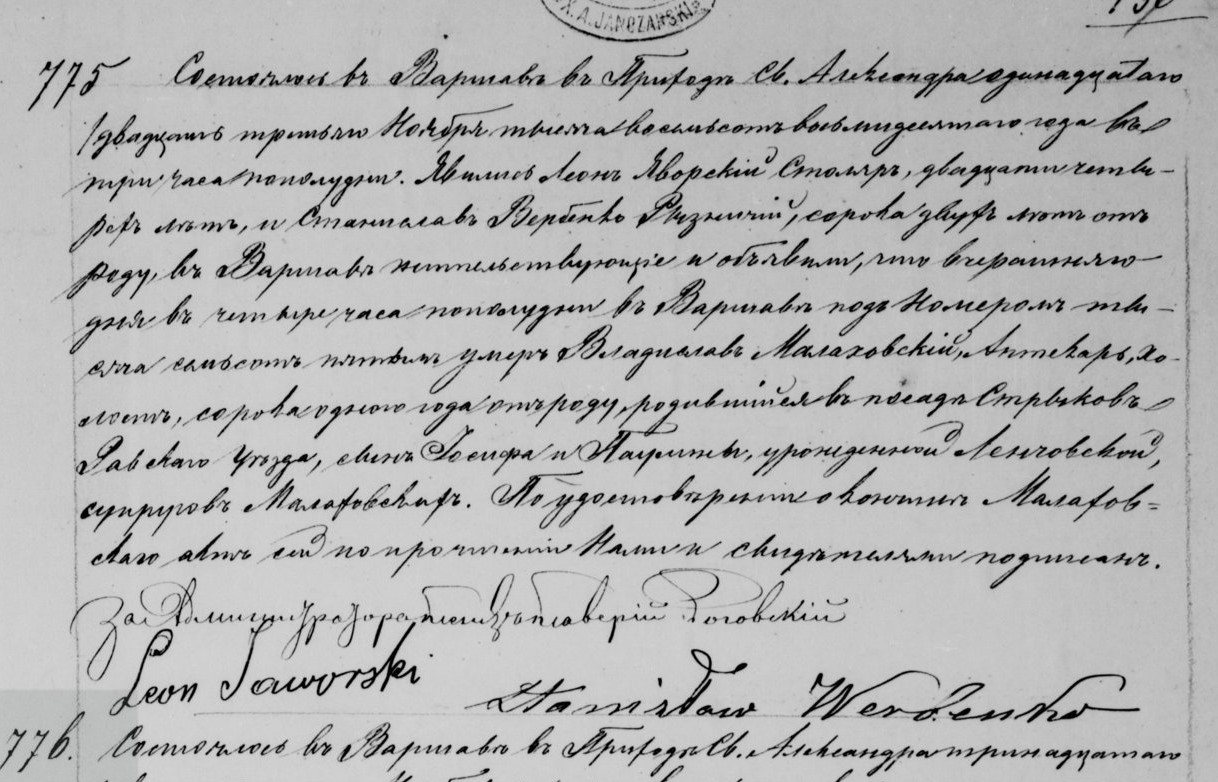 X. A. JANCZARSKI
775 Состоялось въ Варшавѣ въ Приходѣ Св. Александра одинадцатаго
/двадцать третьяго Ноября тысяча восемьсотъ восьмидесятаго года въ
три часа пополудни. Явились Леонъ Яворскій Столяръ, двадцати четы-
рехъ лѣтъ, и Станиславъ Вербенко Рѣзничій, сорока двухъ лѣтъ отъ
роду, въ Варшавѣ жительствующіе и объявили, что вчерашняго
дня въ четыре часа пополудни въ Варшавѣ подъ Номеромъ ты-
сяча семьсотъ пятымъ умеръ Владиславъ Малаховскій, Аптекарь, хо-
лостъ, сорока одного года отъ роду, родившійся въ посадѣ Стрыковъ
Равскаго уѣзда, сынъ Іосифа и Паулины, урожденной Ленчовской,
супруговъ Малаховскихъ. По удостовѣреніи о кончинѣ Малахов-
скаго актъ сей по прочтеніи Нами и свидѣтелями подписанъ.
За Администратора Роговскій
Leon Jaworski Stanisław Werbenko
776. Состоялось въ Варшавѣ въ Приходѣ Св. Александра тринадцатаго